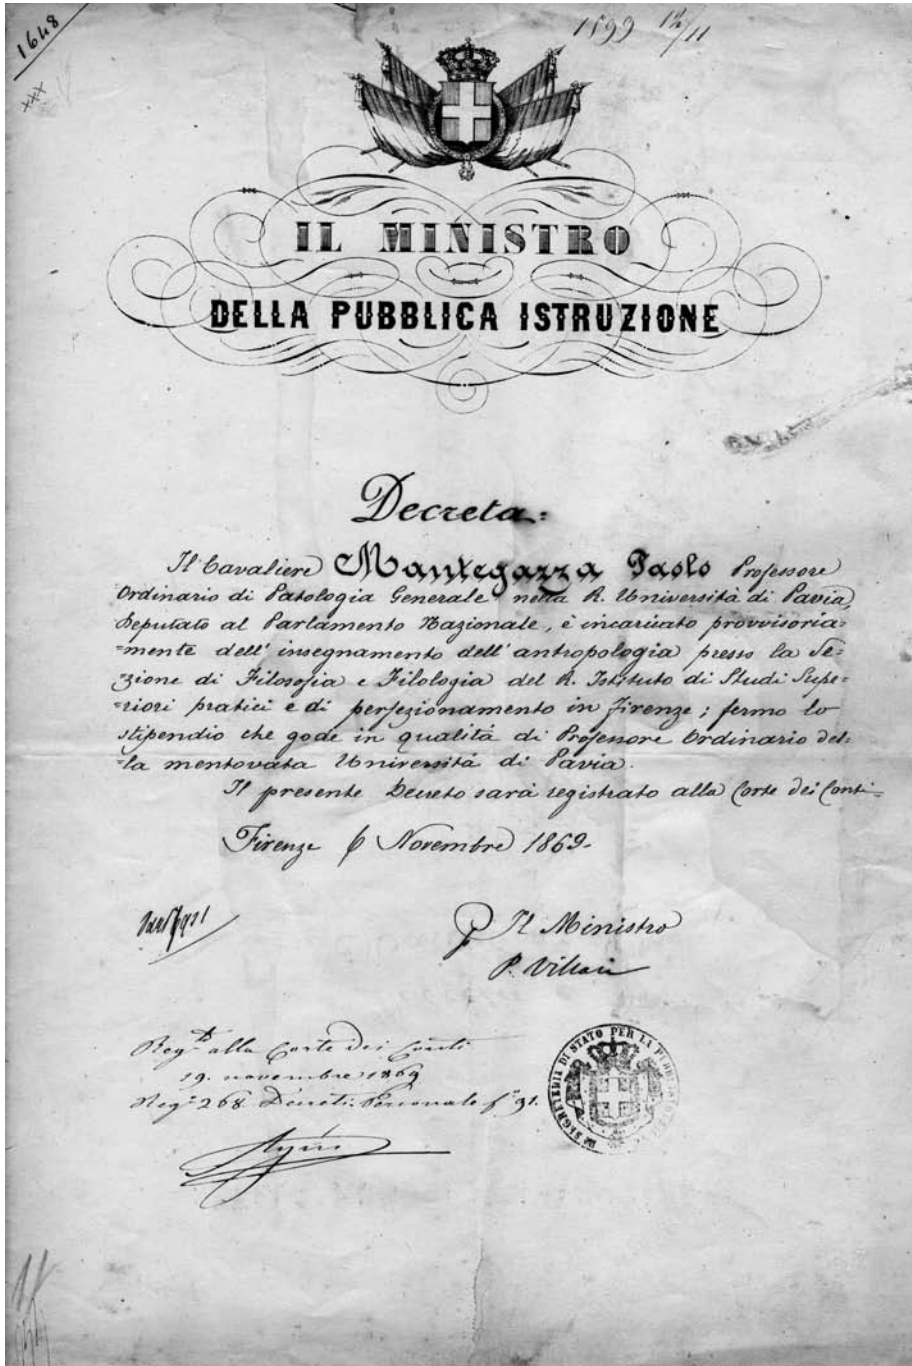 1648
1599 12/11
xxx
IL MINISTRO
DELLA PUBBLICA ISTRUZIONE
Decreta:
Il Cavaliere Mantegazza Paolo Professore
Ordinario di Patologia Generale nella R. Università di Pavia,
Deputato al Parlamento Nazionale, è incaricato provvisoria=
=mente dell'insegnamento dell'antropologia presso la Se=
zione di Filosofia e Filologia del R. Istituto di Studi Supe=
=riori pratici e di perfezionamento in Firenze; fermo lo
stipendio che gode in qualità di Professore Ordinario del=
=la mentovata Università di Pavia.
Il presente Decreto sarà registrato alla Corte dei Conti=
Firenze 6 Novembre 1869.
P Il Ministro
P. Villari
Reg.to alla Corte dei Conti
19. novembre 1869
Reg.o 268 Decreti Personale f.o 91.
SEGRETERIA DI STATO PER LA